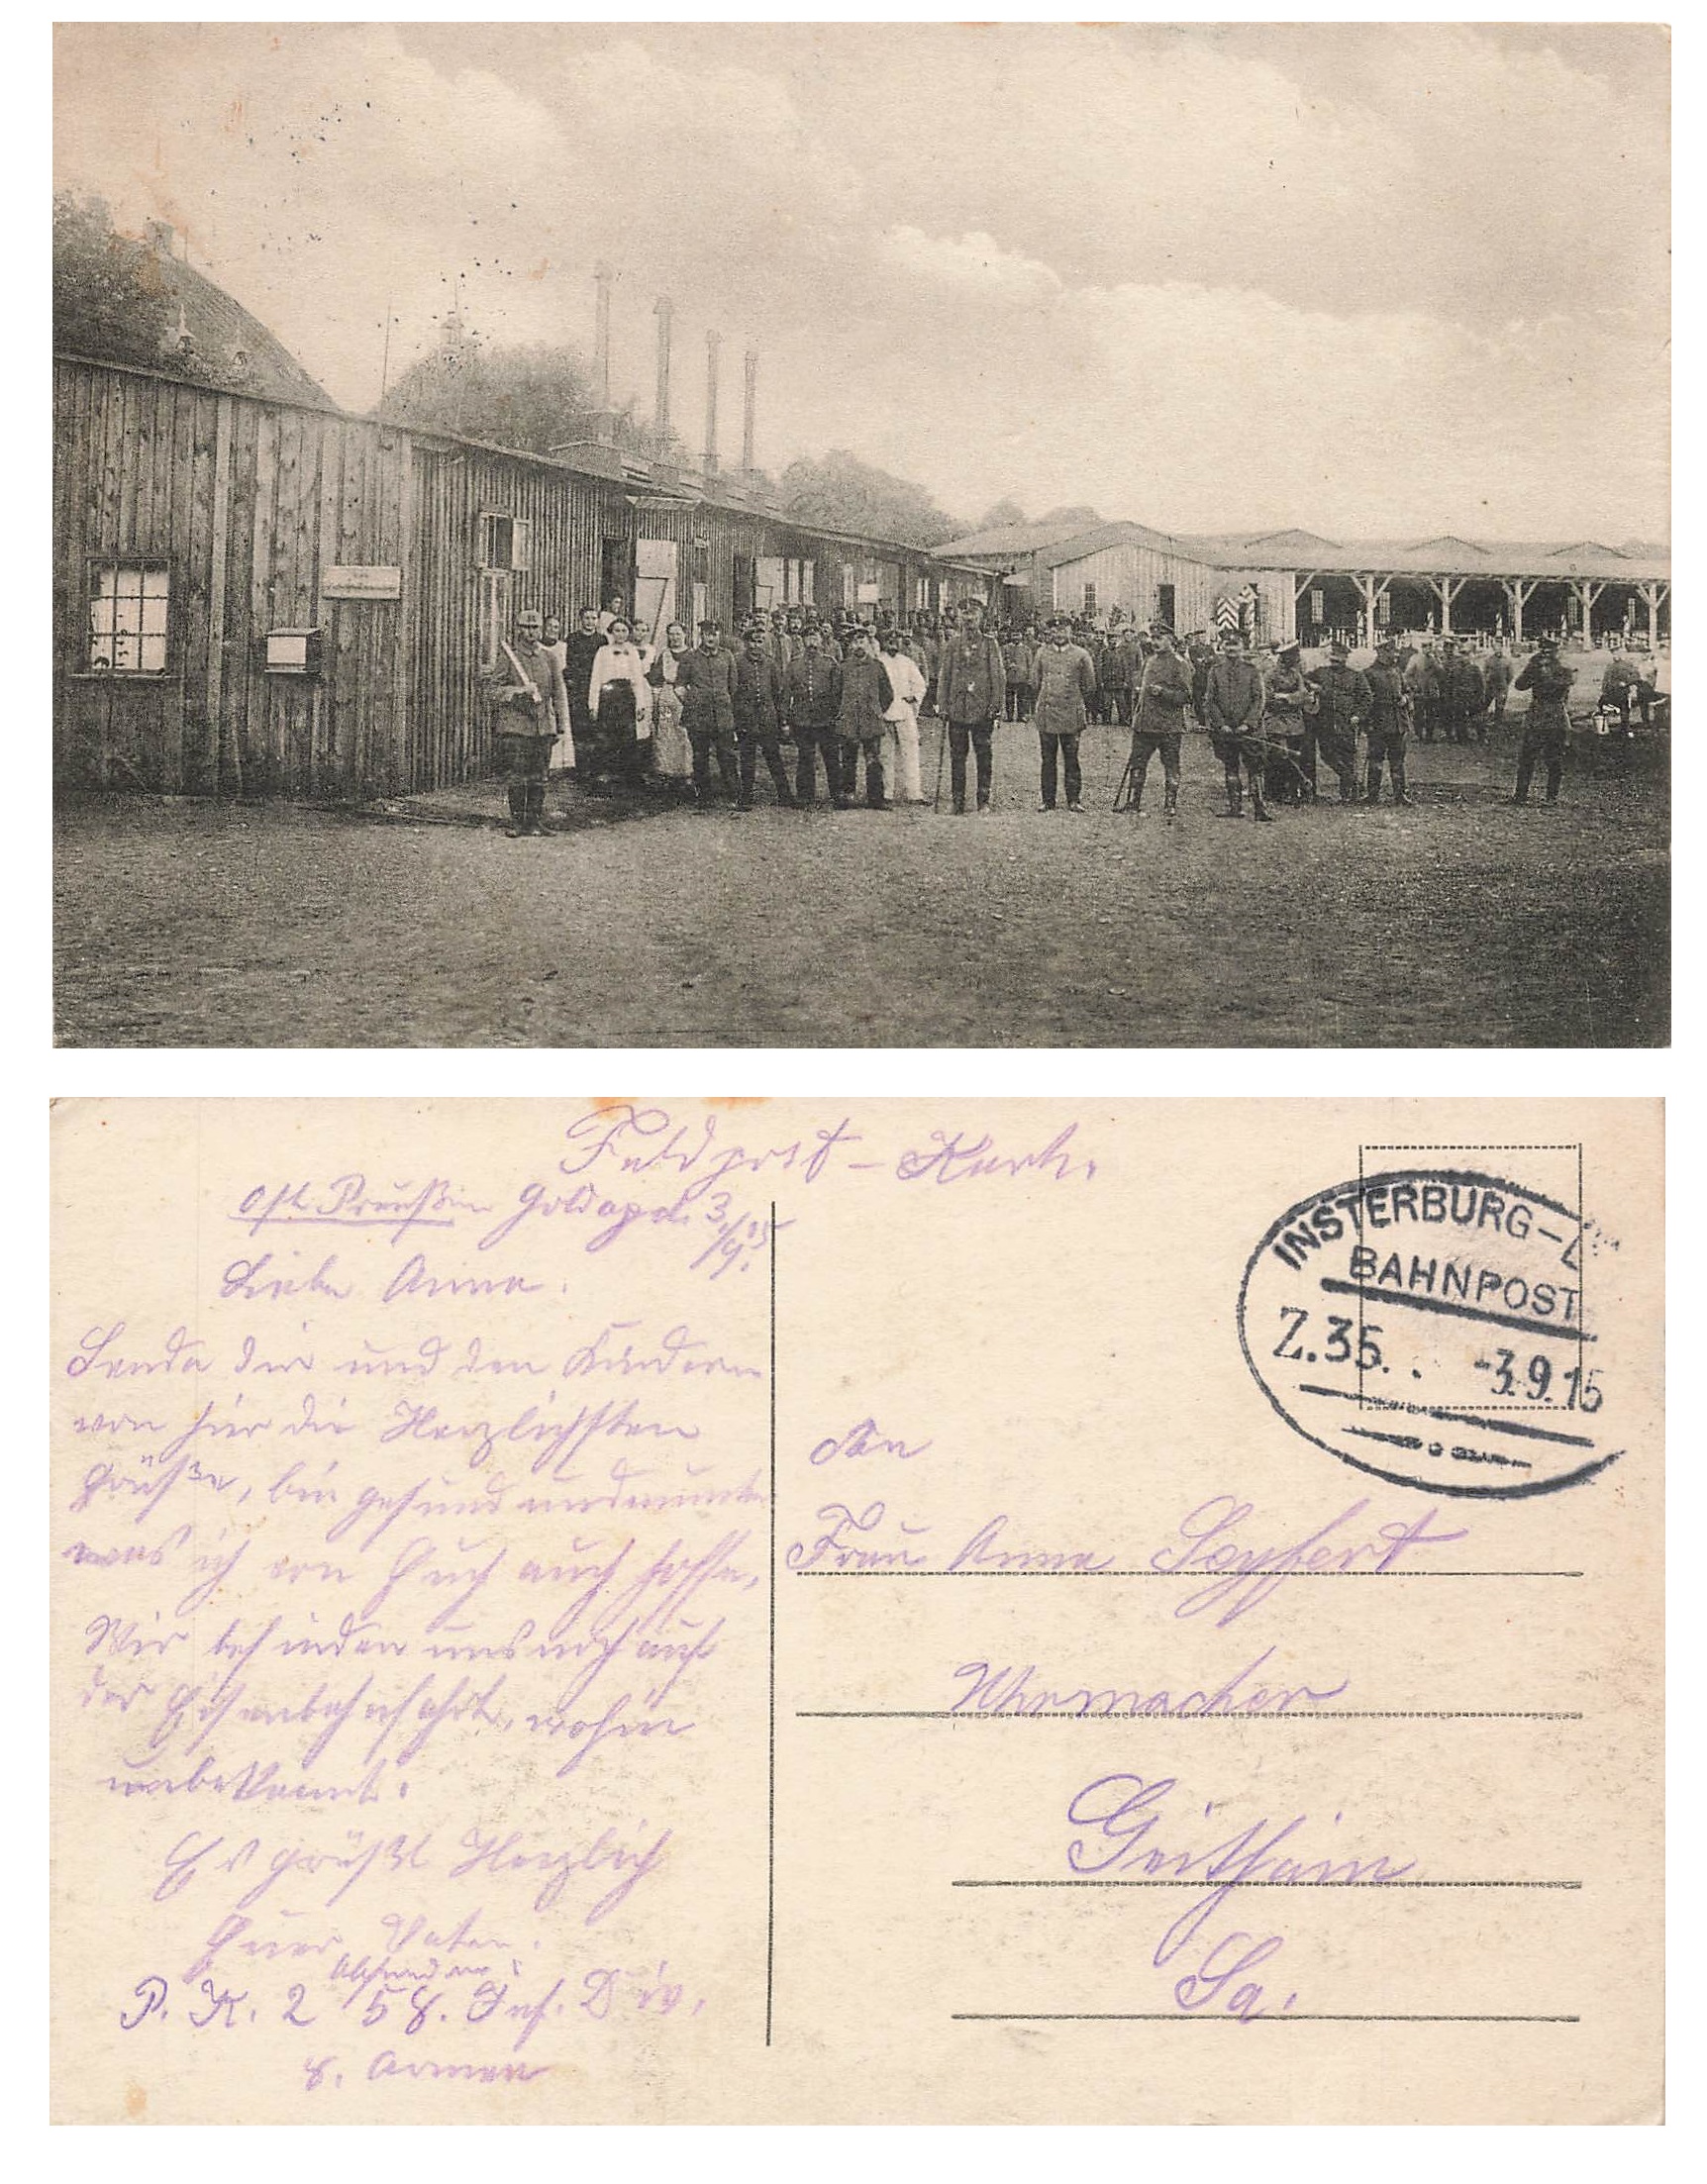 Feldpost-Karte
Ost Preußen Goldap d. 3./9.15
Liebe Anna.
Sende dir und den Kindern
von hier die Herzlichsten
Grüße, bin gesund und munter
was ich von Euch auch hoffe,
Wir befinden uns noch auf
der Eisenbahnfahrt, wohin
unbekannt.
Es grüßt Herzlich
Euer Vater.
Absender:
P. K. 2 58. Inf. Div.
8. Armee
INSTERBURG-L
BAHNPOST
Z.35. . -3.9.15
An
Frau Anna Seyfert
Uhrmacher
Geithain
Sa.